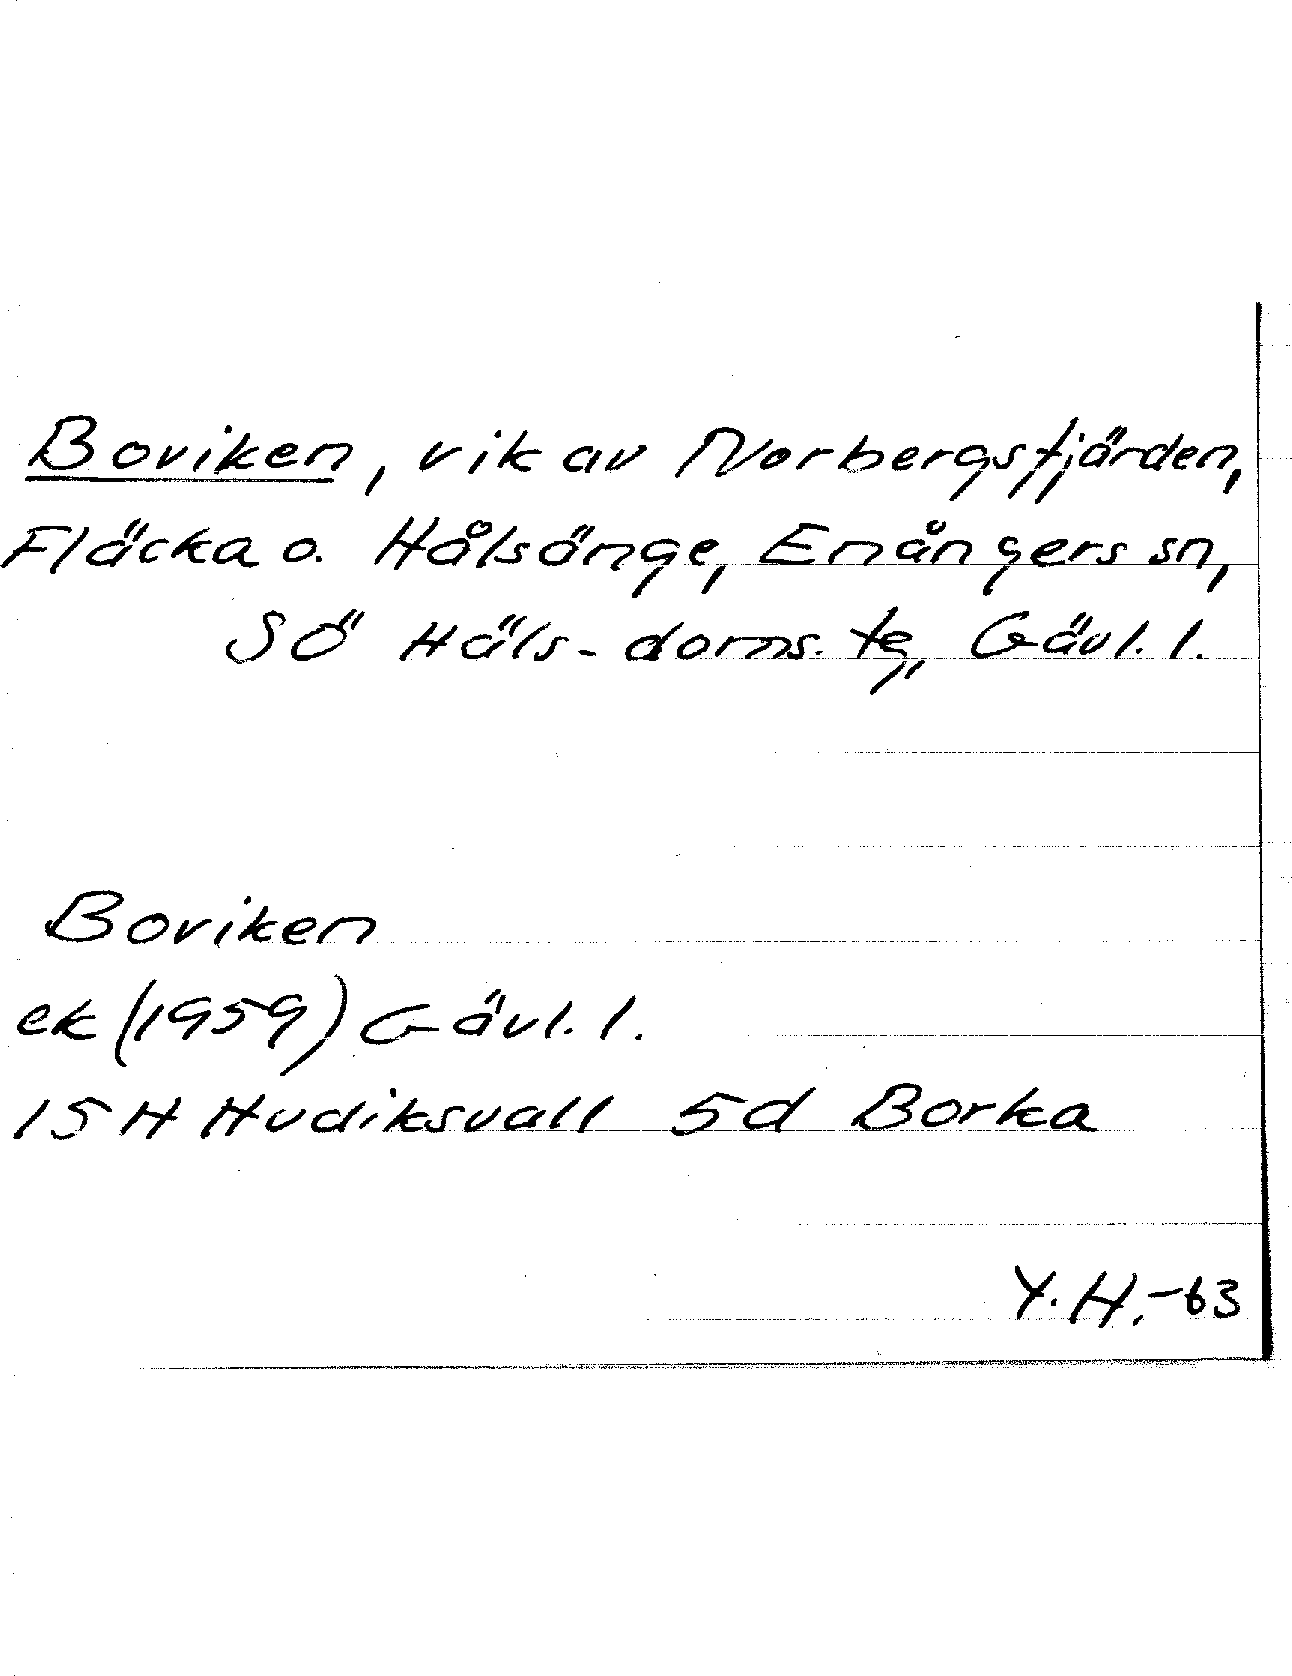 Boviken, vik av Norbergsfjärden,
Fläcka o. Hålsänge, Enångers sn,
SÖ Häls. doms. tg, Gävl. l.
Boviken
ek (1959) Gävl. l.
15 H Hudiksvall 5d Borka
Y. H. -63